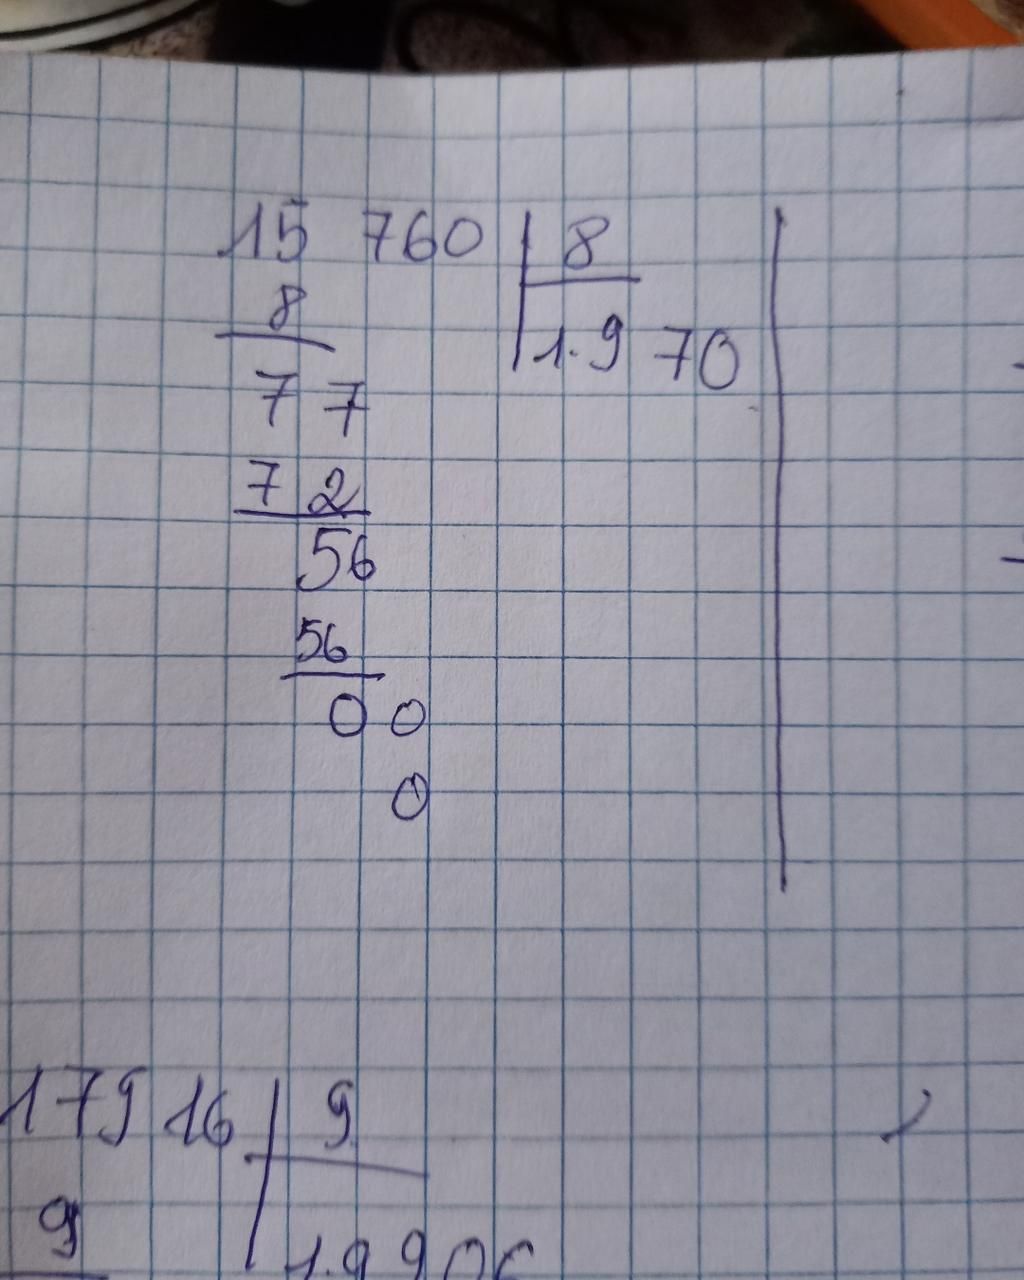 15 760 | 8
8
1.9 70
7 7
7 2
56
56
0 0
0
179 16 | 9
9